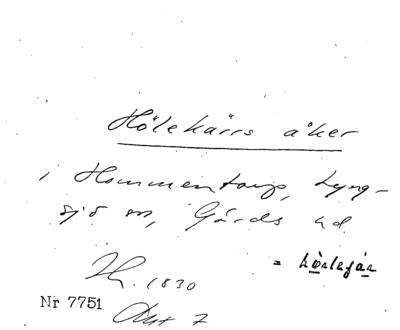 Hölekärrs åker
i Hommentorp, Lyng-
sjö sn, Gärds hd
= 
1830
Nr 7751
Akt 7